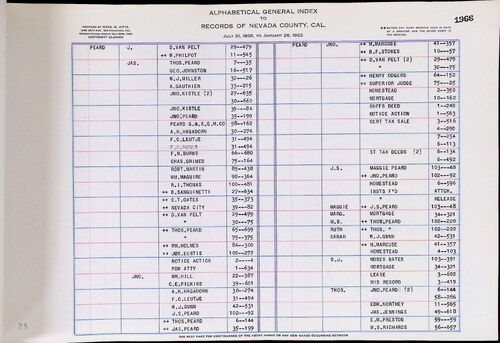 ALPHABETICAL GENERAL INDEX
TO
RECORDS OF NEVADA COUNTY, CAL.
JULY 21, 1856, TO JANUARY 26, 1922
1366
PEARD J. D.VAN PELT 29--479
++ W.PHILPOT 11--545
JAS. THOS.PEARD 7--35
GEO.JOHNSTON 16--517
W.J.MILLER 32--26
A.GAUTHIER 33--215
JNO.KISTLE (2) 27--635
30--660
JNO.KISTLE 30--84
JNO.PEARD 35--199
PEARD G.& S.Q.M.CO 58--162
A.H.HAGADORN 30--274
F.C.LEUTJE 31--494
F.N.BURNS 66--680
CHAS.GRIMES 75--164
ROBT.MARTIN 85--438
WM.MAGUIRE 98--364
R.I.THOMAS 100--481
++ B.SANGUINETTI 27--634
++ S.T.OATES 35--373
++ NEVADA CITY 39--82
++ D.VAN PELT 29--479
" 30--75
++ THOS.PEARD 65--699
" 75--375
++ WM.HOLMES 84--300
++ JOS.EUSTIS 100--277
NOTICE ACTION 2----4
POW ATTY 1--634
JNO. WM.HILL 22--387
C.E.FILKINS 39--601
A.H.HAGADORN 30--274
F.C.LEUTJE 31--494
W.J.GUNN 42--531
J.S.PEARD 102--92
++ THOS.PEARD 6--144
++ JAS.PEARD 35--199
PEARD JNO. ++ W.MARCUSE 41--357
++ B.F.STOKES 10--57
++ D.VAN PELT (2) 29--479
" 30--75
++ HENRY ODGERS 64--152
++ SUPERIOR JUDGE 75--25
HOMESTEAD 2--350
MORTGAGE 18--162
SHFFS DEED 1--248
NOTICE ACTION 1--563
CERT TAX SALE 3--516
4--260
7--254
6--113
ST TAX DEEDS (2) 6--134
6--492
J.S. MAGGIE PEARD 103--48
++ JNO.PEARD 102--92
HOMESTEAD 6--596
INSTS F'D ATTCH.
" RELEASE
MAGGIE ++ J.S.PEARD 103--48
MARG. MORTGAGE 34--321
M.S. ++ THOS.PEARD 102--220
RUTH ++ THOS. " 102--220
SARAH W.J.GUNN 42--531
++ W.MARCUSE 41--357
HOMESTEAD 4--103
S.J. MOSES BATES 103--391
MORTGAGE 34--321
LEASE 3--602
MIS RECORD 3--419
THOS. JNO.PEARD (2) 6--144
58--286
EDW.NORTHEY 11--595
JAS.JENNINGS 49--618
J.H.PRESTON 59--59
W.S.RICHARDS 56--657
25